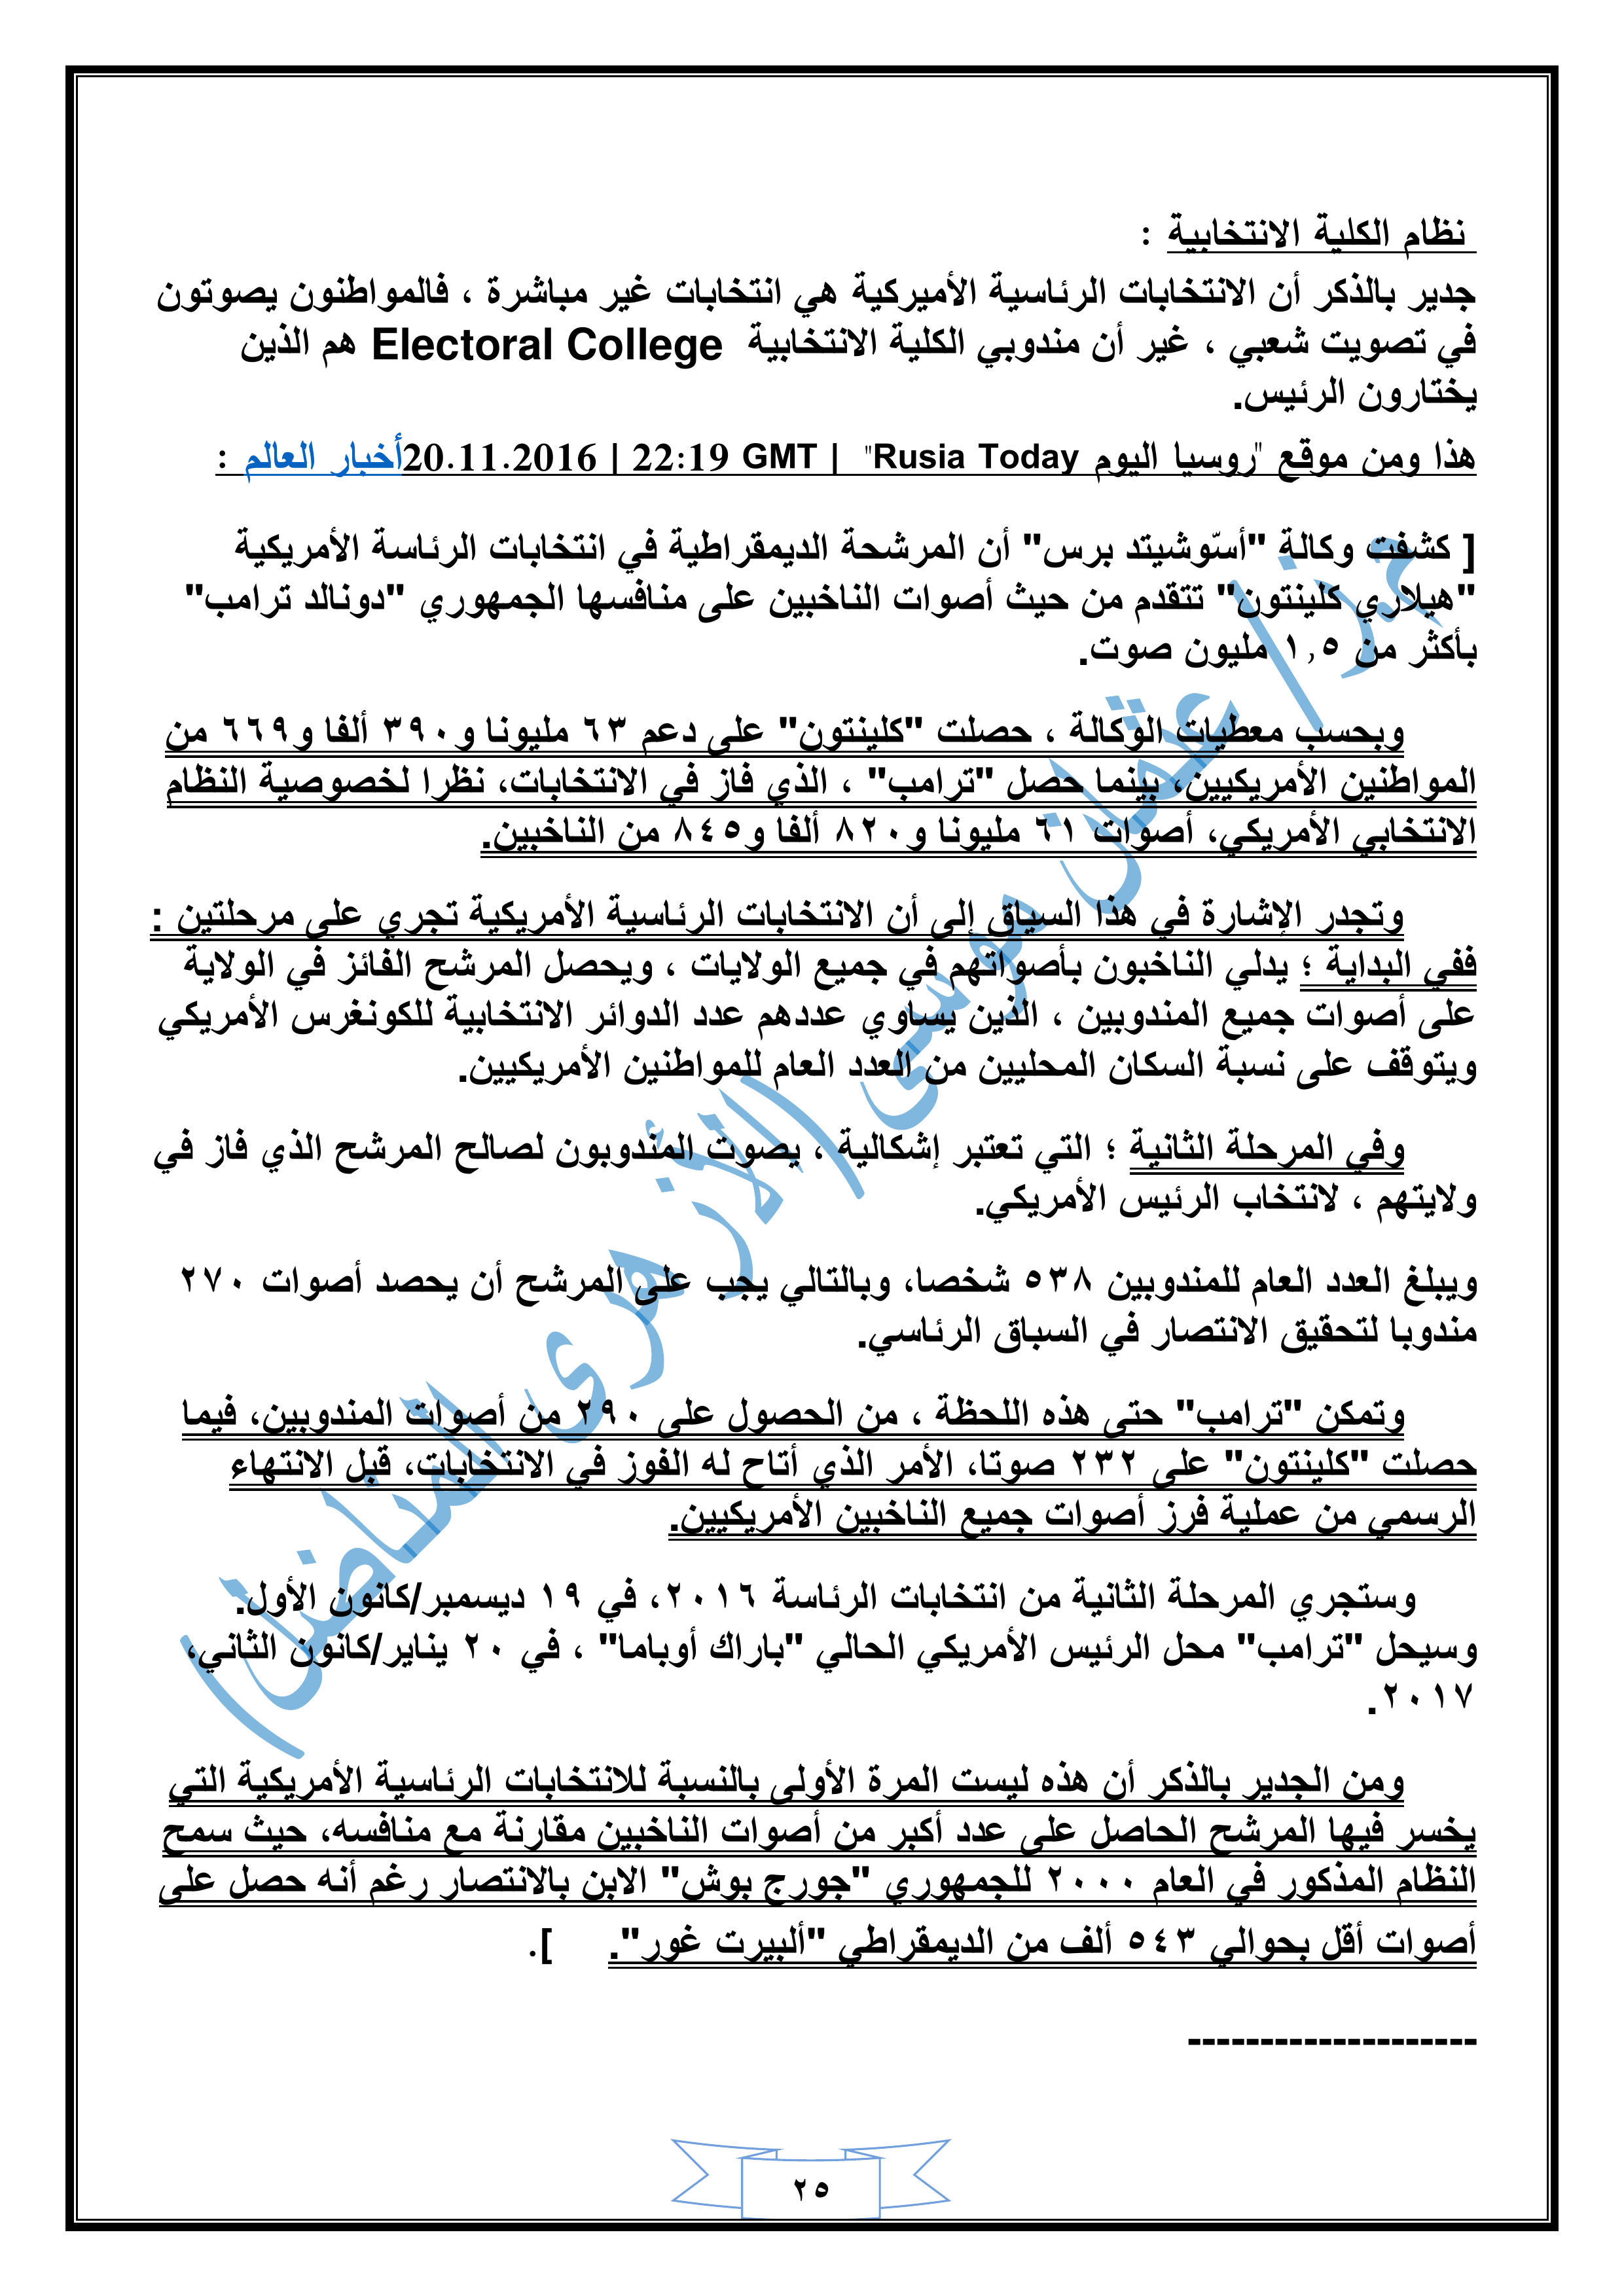 نظام الكلية الانتخابية :
جدير بالذكر أن الانتخابات الرئاسية الأميركية هي انتخابات غير مباشرة ، فالمواطنون يصوتون
في تصويت شعبي ، غير أن مندوبي الكلية الانتخابية Electoral College هم الذين
يختارون الرئيس.
هذا ومن موقع "روسيا اليوم Rusia Today" | 20.11.2016 | 22:19 GMT أخبار العالم :
[ كشفت وكالة "أسّوشيتد برس" أن المرشحة الديمقراطية في انتخابات الرئاسة الأمريكية
"هيلاري كلينتون" تتقدم من حيث أصوات الناخبين على منافسها الجمهوري "دونالد ترامب"
بأكثر من ١,٥ مليون صوت.
وبحسب معطيات الوكالة ، حصلت "كلينتون" على دعم ٦٣ مليونا و٣٩٠ ألفا و٦٦٩ من
المواطنين الأمريكيين، بينما حصل "ترامب" ، الذي فاز في الانتخابات، نظرا لخصوصية النظام
الانتخابي الأمريكي، أصوات ٦١ مليونا و٨٢٠ ألفا و٨٤٥ من الناخبين.
وتجدر الإشارة في هذا السياق إلى أن الانتخابات الرئاسية الأمريكية تجري على مرحلتين :
ففي البداية ؛ يدلي الناخبون بأصواتهم في جميع الولايات ، ويحصل المرشح الفائز في الولاية
على أصوات جميع المندوبين ، الذين يساوي عددهم عدد الدوائر الانتخابية للكونغرس الأمريكي
ويتوقف على نسبة السكان المحليين من العدد العام للمواطنين الأمريكيين.
وفي المرحلة الثانية ؛ التي تعتبر إشكالية ، يصوت المندوبون لصالح المرشح الذي فاز في
ولايتهم ، لانتخاب الرئيس الأمريكي.
ويبلغ العدد العام للمندوبين ٥٣٨ شخصا، وبالتالي يجب على المرشح أن يحصد أصوات ٢٧٠
مندوبا لتحقيق الانتصار في السباق الرئاسي.
وتمكن "ترامب" حتى هذه اللحظة ، من الحصول على ٢٩٠ من أصوات المندوبين، فيما
حصلت "كلينتون" على ٢٣٢ صوتا، الأمر الذي أتاح له الفوز في الانتخابات، قبل الانتهاء
الرسمي من عملية فرز أصوات جميع الناخبين الأمريكيين.
وستجري المرحلة الثانية من انتخابات الرئاسة ٢٠١٦، في ١٩ ديسمبر/كانون الأول.
وسيحل "ترامب" محل الرئيس الأمريكي الحالي "باراك أوباما" ، في ٢٠ يناير/كانون الثاني،
٢٠١٧.
ومن الجدير بالذكر أن هذه ليست المرة الأولى بالنسبة للانتخابات الرئاسية الأمريكية التي
يخسر فيها المرشح الحاصل على عدد أكبر من أصوات الناخبين مقارنة مع منافسه، حيث سمح
النظام المذكور في العام ٢٠٠٠ للجمهوري "جورج بوش" الابن بالانتصار رغم أنه حصل على
أصوات أقل بحوالي ٥٤٣ ألف من الديمقراطي "ألبيرت غور". ].
--------------------
٢٥
عثمان موسى (الأزهرى المناضل)